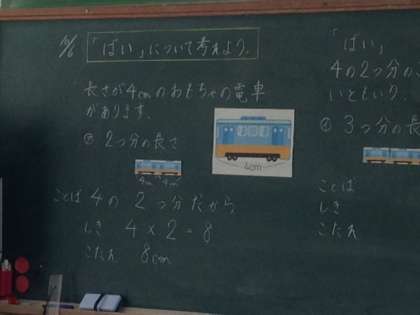 「ばい」について考えよう。
長さが4cmのおもちゃの電車
があります。
2つ分の長さ
4cm
ことば 4の2つ分だから
しき 4×2=8
こたえ 8cm
「ばい」
4の2つ分の
いという。
3つ分の長
ことば
しき
こたえ